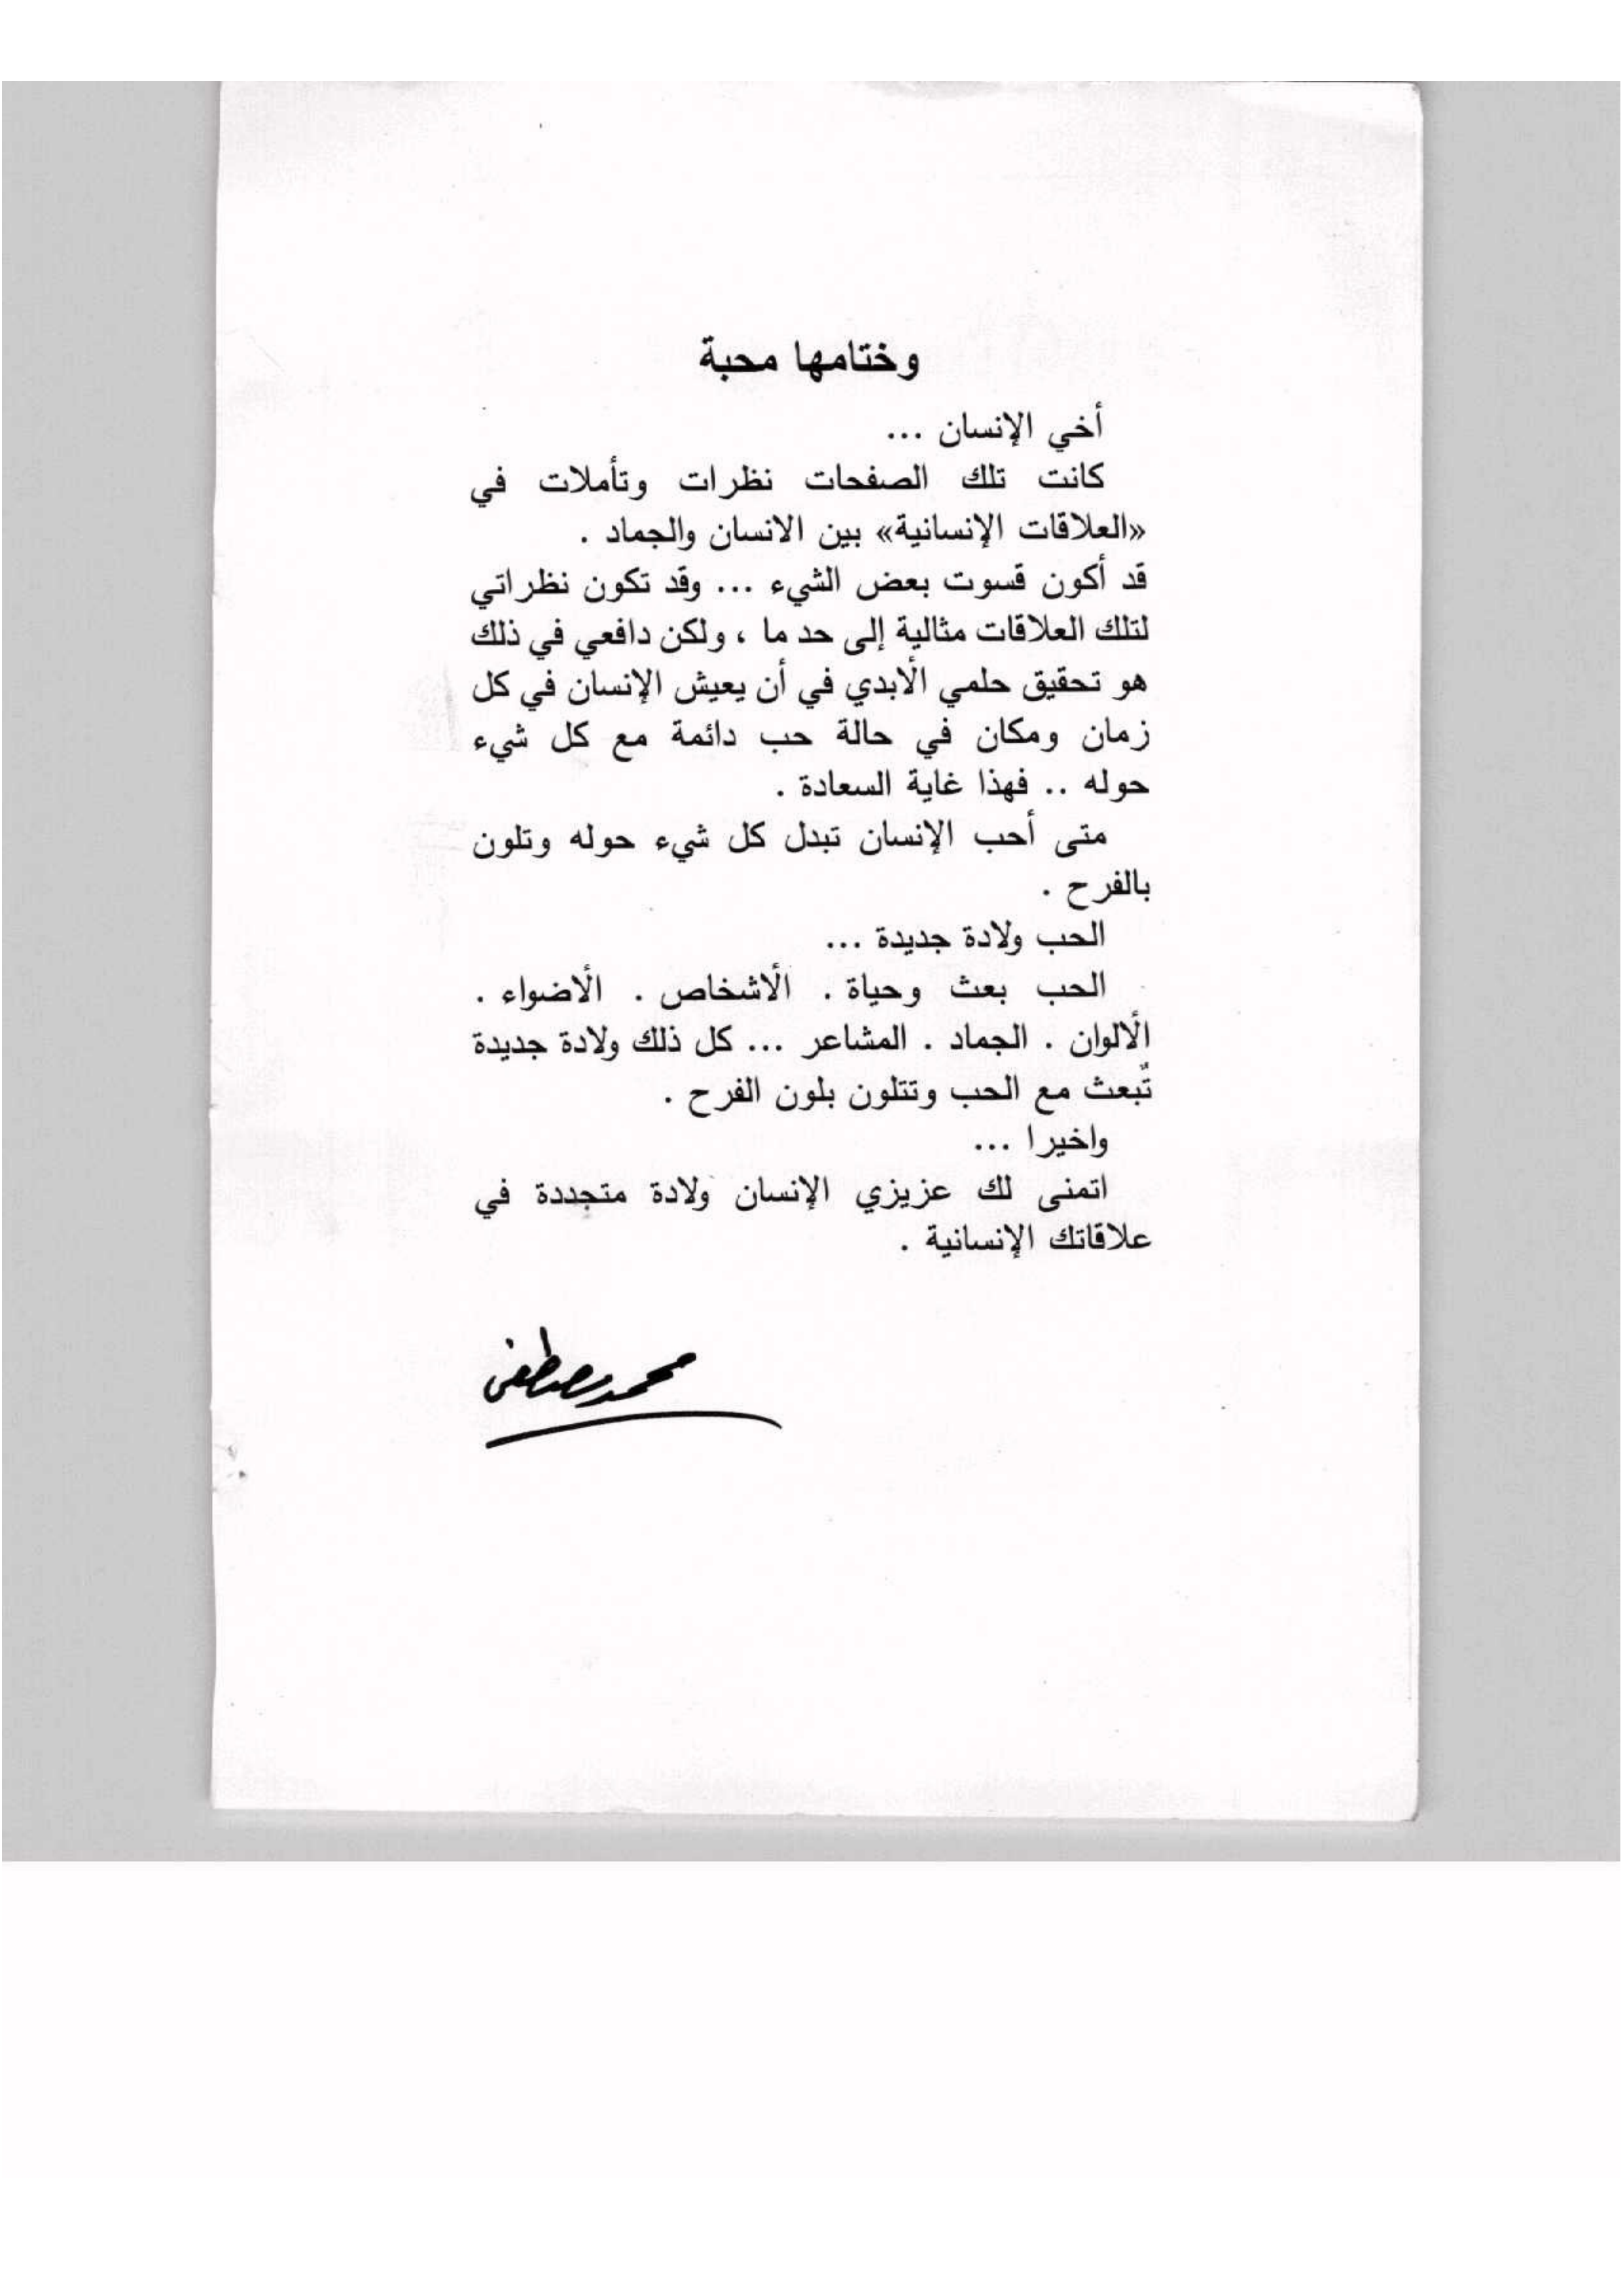 وختامها محبة
أخي الإنسان ...
كانت تلك الصفحات نظرات وتأملات في
«العلاقات الإنسانية» بين الانسان والجماد .
قد أكون قسوت بعض الشيء ... وقد تكون نظراتي
لتلك العلاقات مثالية إلى حد ما ، ولكن دافعي في ذلك
هو تحقيق حلمي الأبدي في أن يعيش الإنسان في كل
زمان ومكان في حالة حب دائمة مع كل شيء
حوله .. فهذا غاية السعادة .
متى أحب الإنسان تبدل كل شيء حوله وتلون
بالفرح .
الحب ولادة جديدة ...
الحب بعث وحياة . الأشخاص . الأضواء .
الألوان . الجماد . المشاعر ... كل ذلك ولادة جديدة
تُبعث مع الحب وتتلون بلون الفرح .
واخيرا ...
اتمنى لك عزيزي الإنسان ولادة متجددة في
علاقاتك الإنسانية .
محمد مصطفى